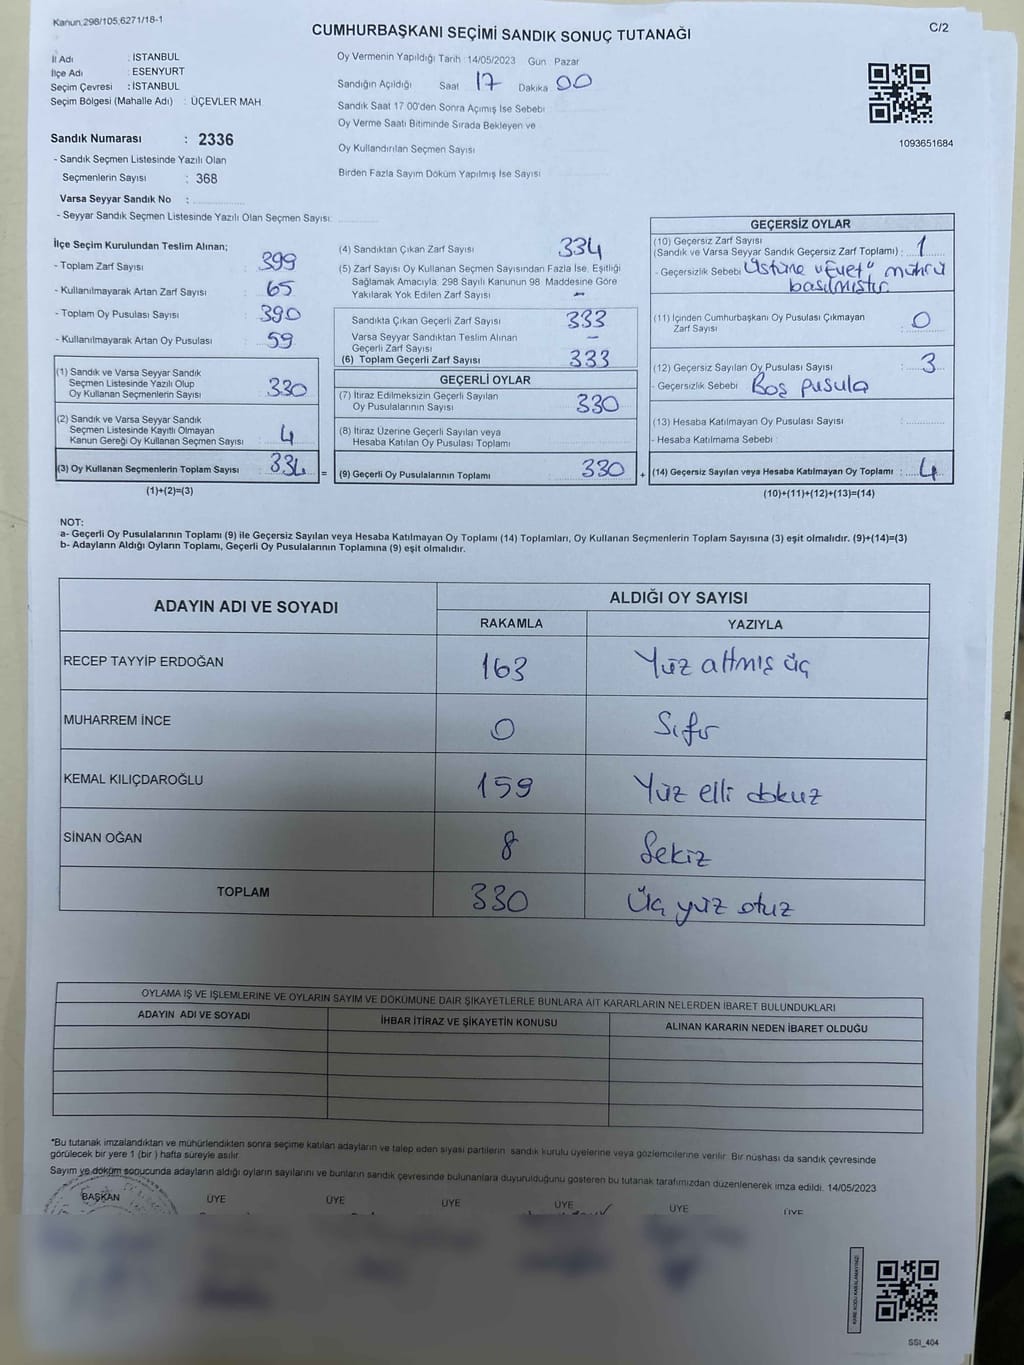 Kanun,298/105,6271/18-1
CUMHURBAŞKANI SEÇİMİ SANDIK SONUÇ TUTANAĞI
C/2
İl Adı : İSTANBUL
İlçe Adı : ESENYURT
Seçim Çevresi : İSTANBUL
Seçim Bölgesi (Mahalle Adı) : ÜÇEVLER MAH
Sandık Numarası : 2336
- Sandık Seçmen Listesinde Yazılı Olan
Seçmenlerin Sayısı : 368
Varsa Seyyar Sandık No :
- Seyyar Sandık Seçmen Listesinde Yazılı Olan Seçmen Sayısı:
Oy Vermenin Yapıldığı Tarih 14/05/2023 Gün Pazar
Sandığın Açıldığı Saat 17 Dakika 00
Sandık Saat 17 00'den Sonra Açımış İse Sebebi
Oy Verme Saati Bitiminde Sırada Bekleyen ve
Oy Kullandırılan Seçmen Sayısı
Birden Fazla Sayım Döküm Yapılmış İse Sayısı
1093651684
İlçe Seçim Kurulundan Teslim Alınan;
- Toplam Zarf Sayısı : 399
- Kullanılmayarak Artan Zarf Sayısı : 65
- Toplam Oy Pusulası Sayısı : 390
- Kullanılmayarak Artan Oy Pusulası : 59
(1) Sandık ve Varsa Seyyar Sandık
Seçmen Listesinde Yazılı Olup
Oy Kullanan Seçmenlerin Sayısı : 330
(2) Sandık ve Varsa Seyyar Sandık
Seçmen Listesinde Kayıtlı Olmayan
Kanun Gereği Oy Kullanan Seçmen Sayısı : 4
(3) Oy Kullanan Seçmenlerin Toplam Sayısı : 334 =
(1)+(2)=(3)
(4) Sandıktan Çıkan Zarf Sayısı 334
(5) Zarf Sayısı Oy Kullanan Seçmen Sayısından Fazla İse, Eşitliği
Sağlamak Amacıyla, 298 Sayılı Kanunun 98. Maddesine Göre
Yakılarak Yok Edilen Zarf Sayısı –
Sandıkta Çıkan Geçerli Zarf Sayısı 333
Varsa Seyyar Sandıktan Teslim Alınan
Geçerli Zarf Sayısı –
(6) Toplam Geçerli Zarf Sayısı 333
GEÇERLİ OYLAR
(7) İtiraz Edilmeksizin Geçerli Sayılan
Oy Pusulalarının Sayısı 330
(8) İtiraz Üzerine Geçerli Sayılan veya
Hesaba Katılan Oy Pusulası Toplamı
(9) Geçerli Oy Pusulalarının Toplamı 330 +
GEÇERSİZ OYLAR
(10) Geçersiz Zarf Sayısı
(Sandık ve Varsa Seyyar Sandık Geçersiz Zarf Toplamı) : 1
- Geçersizlik Sebebi Üstüne "Evet" mührü
basılmıştır.
(11) İçinden Cumhurbaşkanı Oy Pusulası Çıkmayan
Zarf Sayısı : 0
(12) Geçersiz Sayılan Oy Pusulası Sayısı : 3
- Geçersizlik Sebebi Boş pusula
(13) Hesaba Katılmayan Oy Pusulası Sayısı :
- Hesaba Katılmama Sebebi :
(14) Geçersiz Sayılan veya Hesaba Katılmayan Oy Toplamı : 4
(10)+(11)+(12)+(13)=(14)
NOT:
a- Geçerli Oy Pusulalarının Toplamı (9) ile Geçersiz Sayılan veya Hesaba Katılmayan Oy Toplamı (14) Toplamları, Oy Kullanan Seçmenlerin Toplam Sayısına (3) eşit olmalıdır. (9)+(14)=(3)
b- Adayların Aldığı Oyların Toplamı, Geçerli Oy Pusulalarının Toplamına (9) eşit olmalıdır.
ADAYIN ADI VE SOYADI ALDIĞI OY SAYISI
RAKAMLA YAZIYLA
RECEP TAYYİP ERDOĞAN 163 Yüz altmış üç
MUHARREM İNCE 0 Sıfır
KEMAL KILIÇDAROĞLU 159 Yüz elli dokuz
SİNAN OĞAN 8 Sekiz
TOPLAM 330 Üç yüz otuz
OYLAMA İŞ VE İŞLEMLERİNE VE OYLARIN SAYIM VE DÖKÜMÜNE DAİR ŞİKAYETLERLE BUNLARA AİT KARARLARIN NELERDEN İBARET BULUNDUKLARI
ADAYIN ADI VE SOYADI İHBAR İTİRAZ VE ŞİKAYETİN KONUSU ALINAN KARARIN NEDEN İBARET OLDUĞU
*Bu tutanak imzalandıktan ve mühürlendikten sonra seçime katılan adayların ve talep eden siyasi partilerin sandık kurulu üyelerine veya gözlemcilerine verilir. Bir nüshası da sandık çevresinde
görülecek bir yere 1 (bir ) hafta süreyle asılır
Sayım ve döküm sonucunda adayların aldığı oyların sayılarını ve bunların sandık çevresinde bulunanlara duyurulduğunu gösteren bu tutanak tarafımızdan düzenlenerek imza edildi. 14/05/2023
BAŞKAN ÜYE ÜYE ÜYE ÜYE ÜYE ÜYE
SSI_404